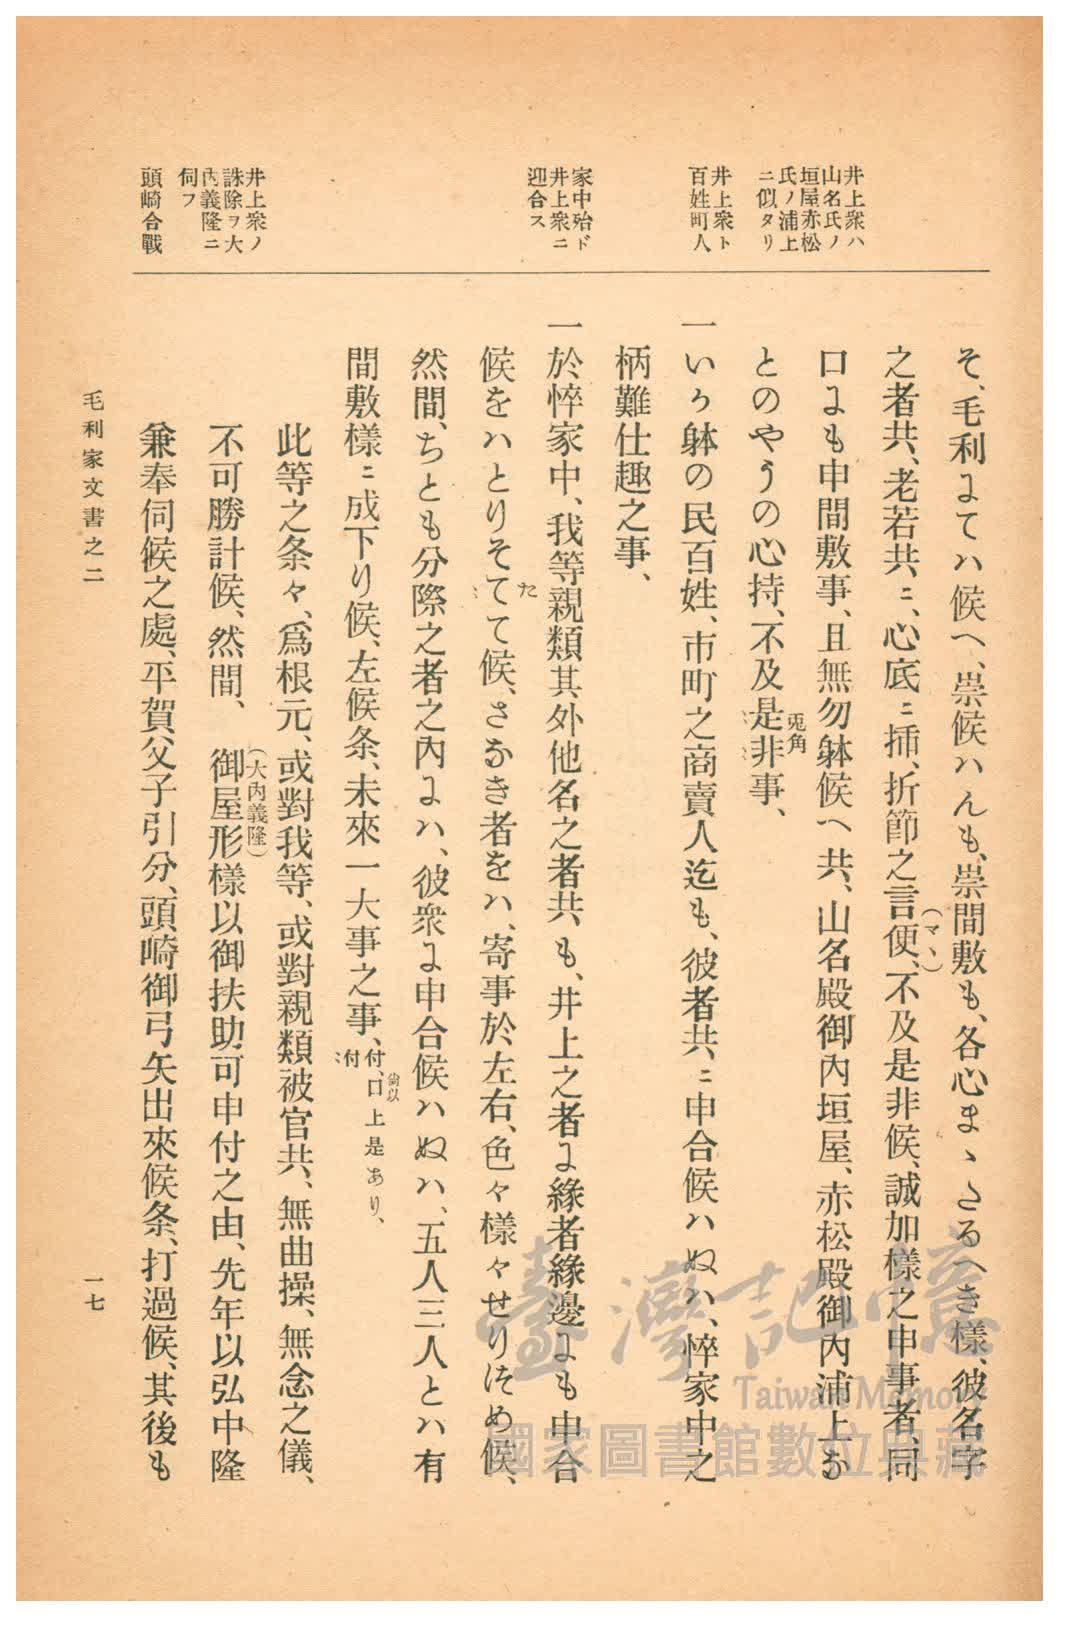 井上衆ハ
山名氏ノ
垣屋赤松
氏ノ浦上
ニ似タリ
井上衆ト
百姓町人
家中殆ド
井上衆ニ
迎合ス
井上衆ノ
誅除ヲ大
內義隆ニ
伺フ
頭崎合戰
そ、毛利ニてハ候へ、崇候ハんも、崇間敷も、各心まゝたるへき樣、彼名字
(マヽ)
之者共、老若共ニ、心底ニ揷、折節之言便、不及是非候、誠加樣之申事者、同
口ニも申間敷事、且無勿躰候へ共、山名殿御內垣屋、赤松殿御內浦上な
とのやうの心持、不及是非事、
兎角
一いか躰の民百姓、市町之商賣人迄も、彼者共ニ申合候ハぬハ、悴家中之
柄難仕趣之事、
一於悴家中、我等親類其外他名之者共も、井上之者ニ緣者緣邊ニも申合
た
候をハとりそてて候、さなき者をハ、寄事於左右、色々樣々せりつめ候、
然間、ちとも分際之者之內ニハ、彼衆ニ申合候ハぬハ、五人三人とハ有
間敷樣ニ成下り候、左候条、未來一大事之事、付、口上是あり、
付
尙以
此等之条々、爲根元、或對我等、或對親類被官共、無曲操、無念之儀、
不可勝計候、然間、 御屋形樣以御扶助可申付之由、先年以弘中隆
(大內義隆)
兼奉伺候之處、平賀父子引分、頭崎御弓矢出來候条、打過候、其後も
毛利家文書之二
一七
臺灣記憶
Taiwan Memory
國家圖書館數位典藏